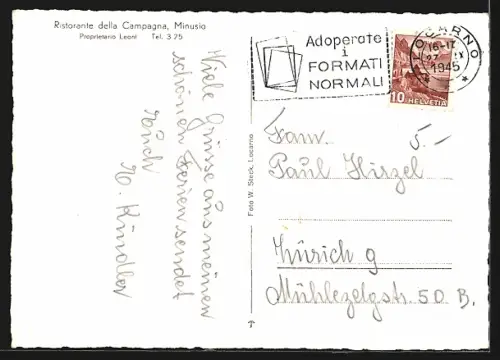 Ristorante della Campagna, Minusio
Proprietario Leoni Tel. 3 75
Viele Grüsse aus meinen
schönen Ferien sendet
Euch
W. Kündler
Foto W. Steck, Locarno
Adoperate
i
FORMATI
NORMALI
LOCARNO
16-17
1945
10 HELVETIA
5.-
Fam.
Paul Hirzel
Zürich 9
Mühlezelgstr. 50 B.